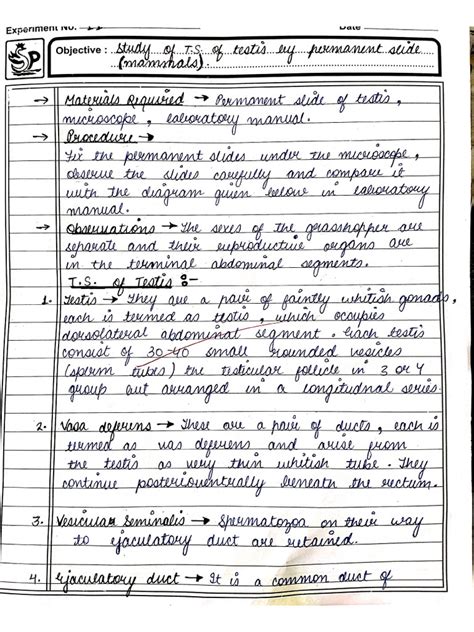 Experiment No. 11 Date
SP
Objective : Study of T.S. of testis by permanent slide
(mammals)
→ Materials Required → Permanent slide of testis,
microscope, laboratory manual.
→ Procedure →
Fix the permanent slides under the microscope,
observe the slides carefully and compare it
with the diagram given below in laboratory
manual.
→ Observations → The sexes of the grasshopper are
separate and their reproductive organs are
in the terminal abdominal segments.
T.S. of Testis :-
1. Testis → They are a pair of faintly whitish gonads,
each is termed as testis, which occupies
dorsolateral abdominal segment. Each testis
consist of 30-40 small rounded vesicles
(sperm tubes) the testicular follicle in 3 or 4
group but arranged in a longitudnal series.
2. Vasa deferens → These are a pair of ducts, each is
termed as vas deferens and arise from
the testis as very thin whitish tube. They
continue posterioventrally beneath the rectum.
3. Vesicular Seminalis → Spermatozoa on their way
to ejaculatory duct are retained.
4. Ejaculatory duct → It is a common duct of